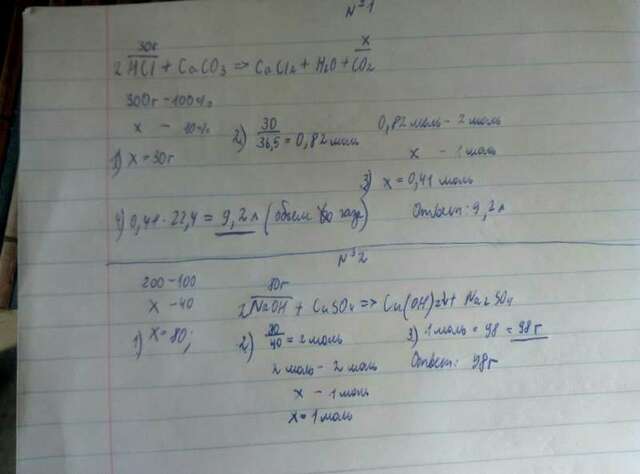 N³1
30г x
2HCl + CaCO₃ => CaCl₂ + H₂O + CO₂
300г - 100%
x - 10%
1) x = 30г
2) 30/36,5 = 0,82 моль
0,82 моль - 2 моль
x - 1 моль
3) x = 0,41 моль
4) 0,41 · 22,4 = 9,2 л (объем газа)
Ответ: 9,2л
N³2
200 - 100
x - 40
1) x = 80;
80г
2NaOH + CuSO₄ => Cu(OH)₂↓ + Na₂SO₄
2) 80/40 = 2 моль
2 моль - 2 моль
x - 1 моль
x = 1 моль
3) 1 моль = 98 = 98 г
Ответ: 98г